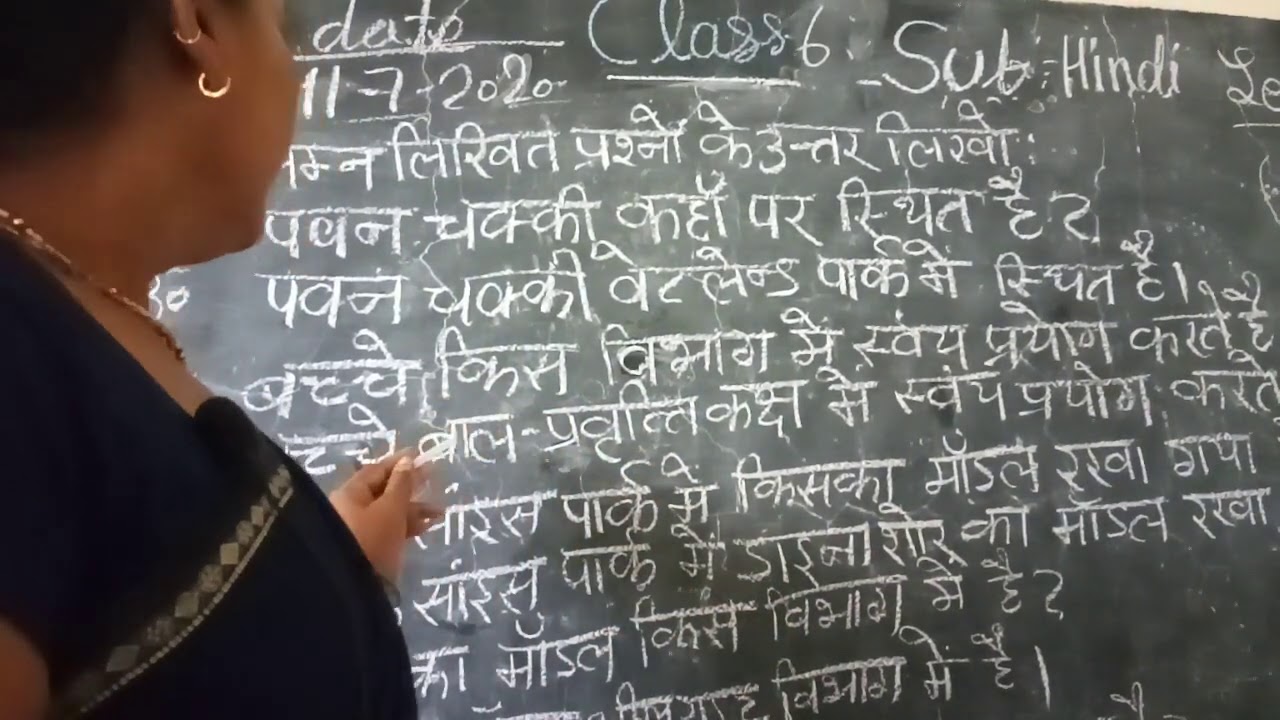 date Class 6 : Sub :- Hindi Le
11-7-2020
म्न लिखित प्रश्नों के उत्तर लिखो :
पवन चक्की कहाँ पर स्थित है ?
उ० पवन चक्की वेटलेन्ड पार्क में स्थित है।
बच्चे किस विभाग में स्वंय प्रयोग करते है
च्चे बाल-प्रवृत्ति कक्ष में स्वंय प्रयोग करते
सांइस पार्क में किसका मॉडल रखा गया
सांइस पार्क में डाइनाशोर का मॉडल रखा
का मॉडल किस विभाग में है ?
विभाग में है।